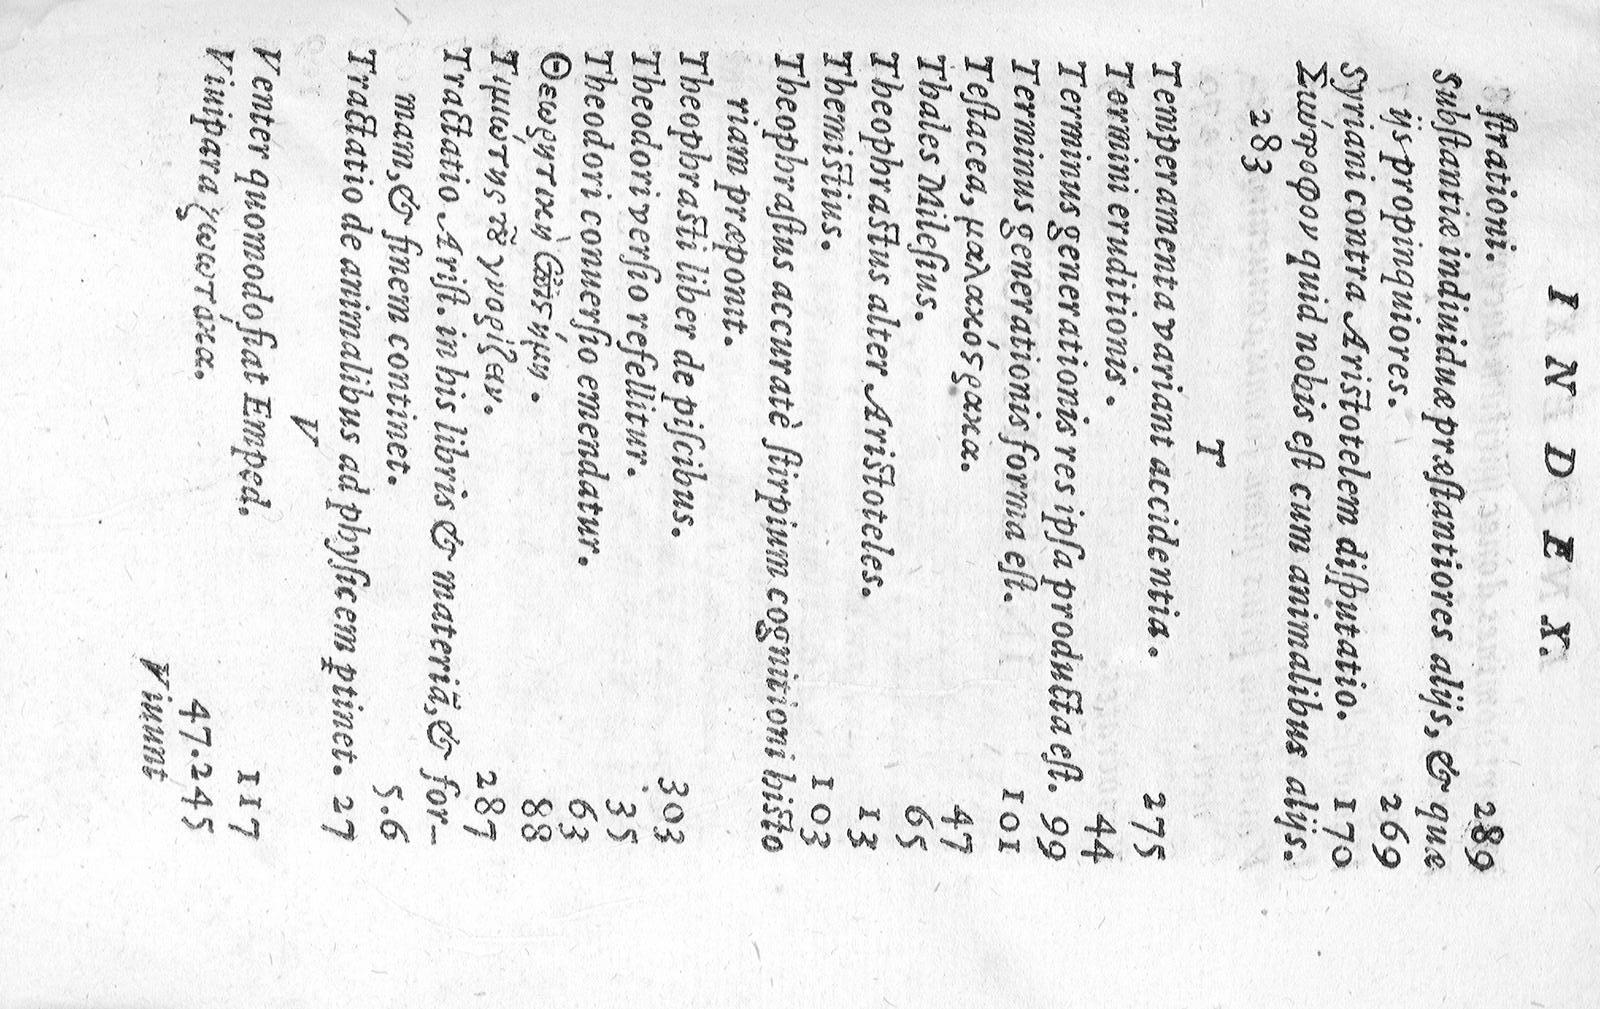 INDEX.
ſtrationi. 289
Subſtantiæ indiuiduæ præſtantiores alijs, & quæ
ijs propinquiores. 269
Syriani contra Ariſtotelem diſputatio. 170
Σιώτροφον quid nobis eſt cum animalibus alijs.
283
T
Temperamenta variant accidentia. 275
Termini eruditionis. 44
Terminus generationis res ipſa producta eſt. 99
Terminus generationis forma eſt. 101
Teſtacea, μαλακόςρακα. 47
Thales Mileſius. 65
Theophraſtus alter Ariſtoteles. 13
Themiſtius. 103
Theophraſtus accuratè ſtirpium cognitioni hiſto
riam præponit.
Theophraſti liber de piſcibus. 303
Theodori verſio refellitur. 35
Theodori conuerſio emendatur. 63
Θεωρητικὴ ἐπιςήμη. 88
Τιμιώτης τȣ͂ γνορίζειν. 287
Tractatio Ariſt. in his libris & materiā, & for-
mam, & finem continet. 5.6
Tractatio de animalibus ad phyſicem ꝑtinet. 27
V
Venter quomodo fiat Emped. 117
Viuipara ζωοτόκα. 47.245
Viuunt